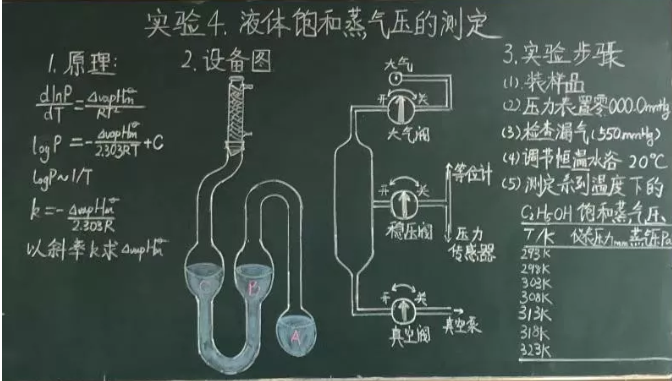 实验4. 液体饱和蒸气压的测定
1. 原理:
dlnP/dT = ΔvapHm⊖/RT²
logP = -ΔvapHm⊖/2.303RT + C
logP~1/T
k = -ΔvapHm⊖/2.303R
以斜率k求ΔvapHm⊖
2. 设备图
C B
A
大气
开 关
大气阀
等位计
开 关
稳压阀
压力
传感器
开 关
真空阀
真空泵
3. 实验步骤
(1). 装样品
(2) 压力表置零000.0mmHg
(3) 检查漏气(550mmHg)
(4) 调节恒温水浴 20℃
(5) 测定系列温度下的
C2H5OH 饱和蒸气压
T/K 仪表压力mm 蒸气压Pa
293K
298K
303K
308K
313K
318K
323K